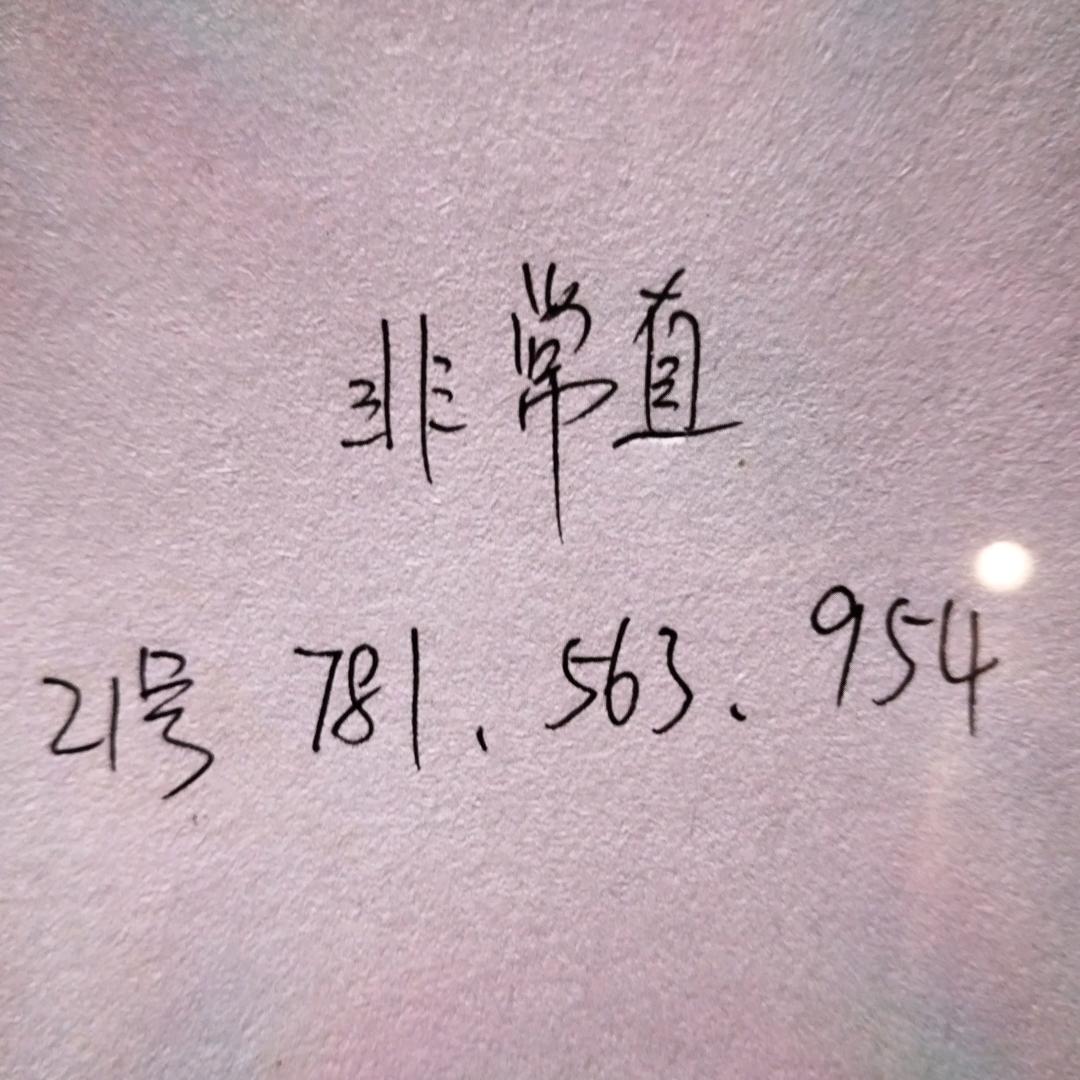 非常直
21号 781、563、954